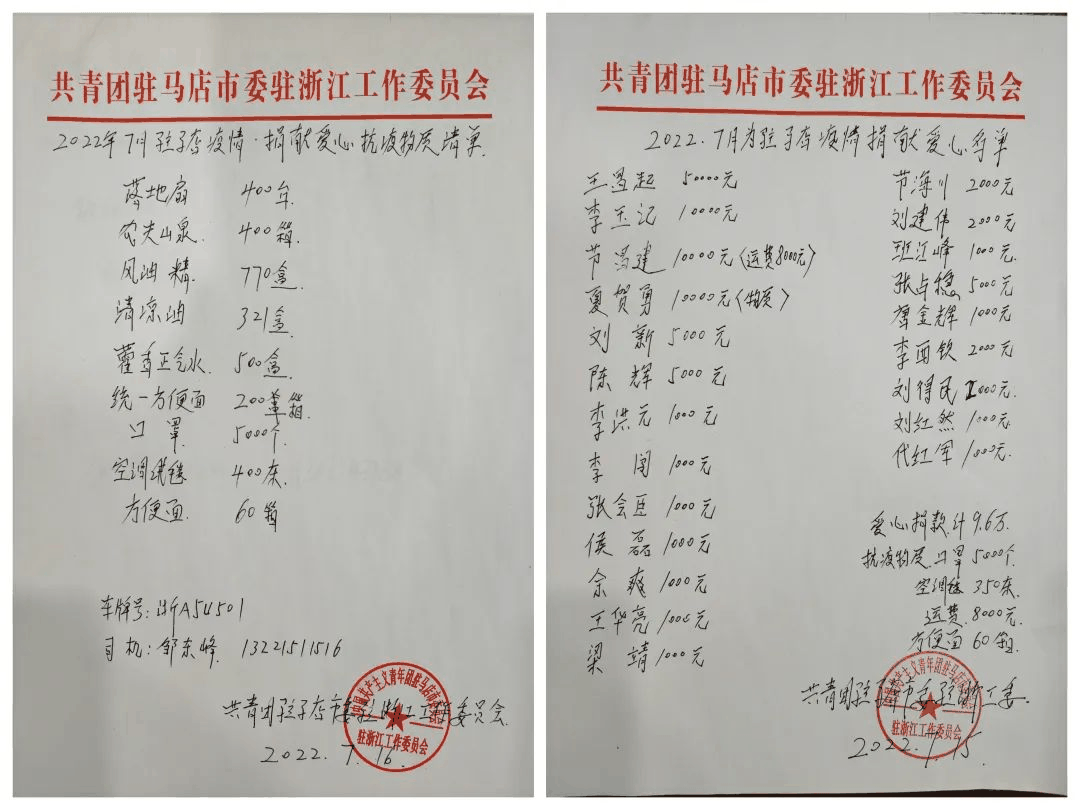 共青团驻马店市委驻浙江工作委员会
2022年7月驻马店疫情·捐献爱心抗疫物资清单
落地扇 400台
农夫山泉. 400箱
风油精 770盒
清凉油 321盒
藿香正气水. 500盒.
统一方便面 200箱.
口罩 5000个.
空调毯 400床.
方便面. 60箱
车牌号: 浙A54501
司机: 邹东峰. 13221511516
共青团驻马店市委驻浙江工作委员会.
2022.7.16
中国共产主义青年团驻马店市委员会
驻浙江工作委员会
共青团驻马店市委驻浙江工作委员会
2022.7月为驻马店疫情捐献爱心名单
王昌起 50000元
李玉记 10000元
节昌建 10000元(运费8000元)
夏贺勇 10000元(物资)
刘新 5000元
陈辉 5000元
李洪元 1000元
李闯 1000元
张会臣 1000元
侯磊 1000元
余爽 1000元
王华亮 1000元
梁靖 1000元
节海川 2000元
刘建伟 2000元
班江峰 1000元
张占稳 5000元
唐金辉 1000元
李酉钦 2000元
刘得民 1000元.
刘红然 1000元
代红军 1000元.
爱心捐款计9.6万.
抗疫物资.口罩5000个.
空调毯350床.
运费.8000元.
方便面60箱.
共青团驻马店市委驻浙工委.
2022.7.15
中国共产主义青年团驻马店市委员会
驻浙江工作委员会